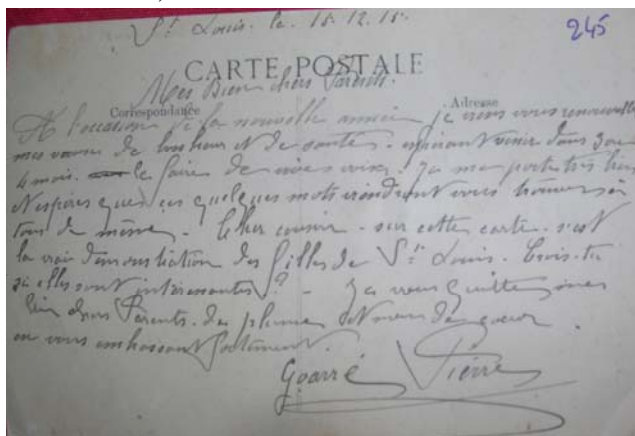 St Louis. le. 15.12.15.
245
CARTE POSTALE
Mes Bien chers Parents.
Correspondance
Adresse
A l'occasion de la nouvelle année je viens vous renouveller
mes voeux de bonheur et de santé. espérant venir dans 3 ou
4 mois. le faire de vive voix. Je me porte très bien
et espère que ces quelques mots viendront vous trouver
tous de même. Cher cousin. sur cette carte. c'est
la vrai démonstration des filles de St Louis. Crois-tu
si elles sont intéressantes? - Je vous quitte mes
bien chers Parents. de plume et non de coeur
en vous embrassant fortement.
Goarré Pierre